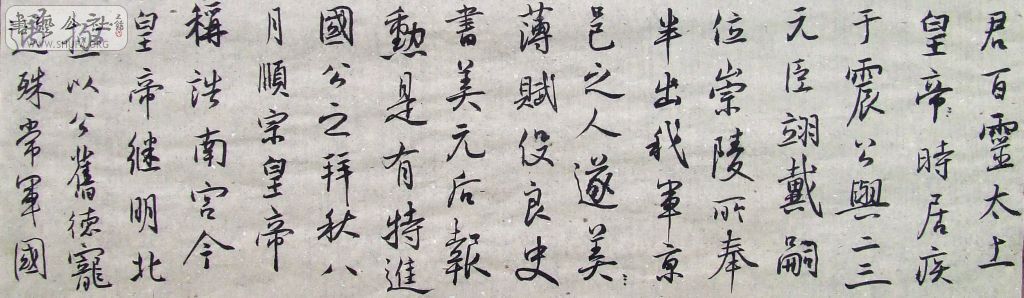 君百靈太上
皇帝時居疾
于震公與二三
元臣翊戴嗣
位崇陵所奉
半出我軍京
邑之人遂美
薄賦役良史
書美元后報
勳是有特進
國公之拜秋八
月順宗皇帝
稱誥南宮今
皇帝継明北
極以公舊德寵
殊常軍國